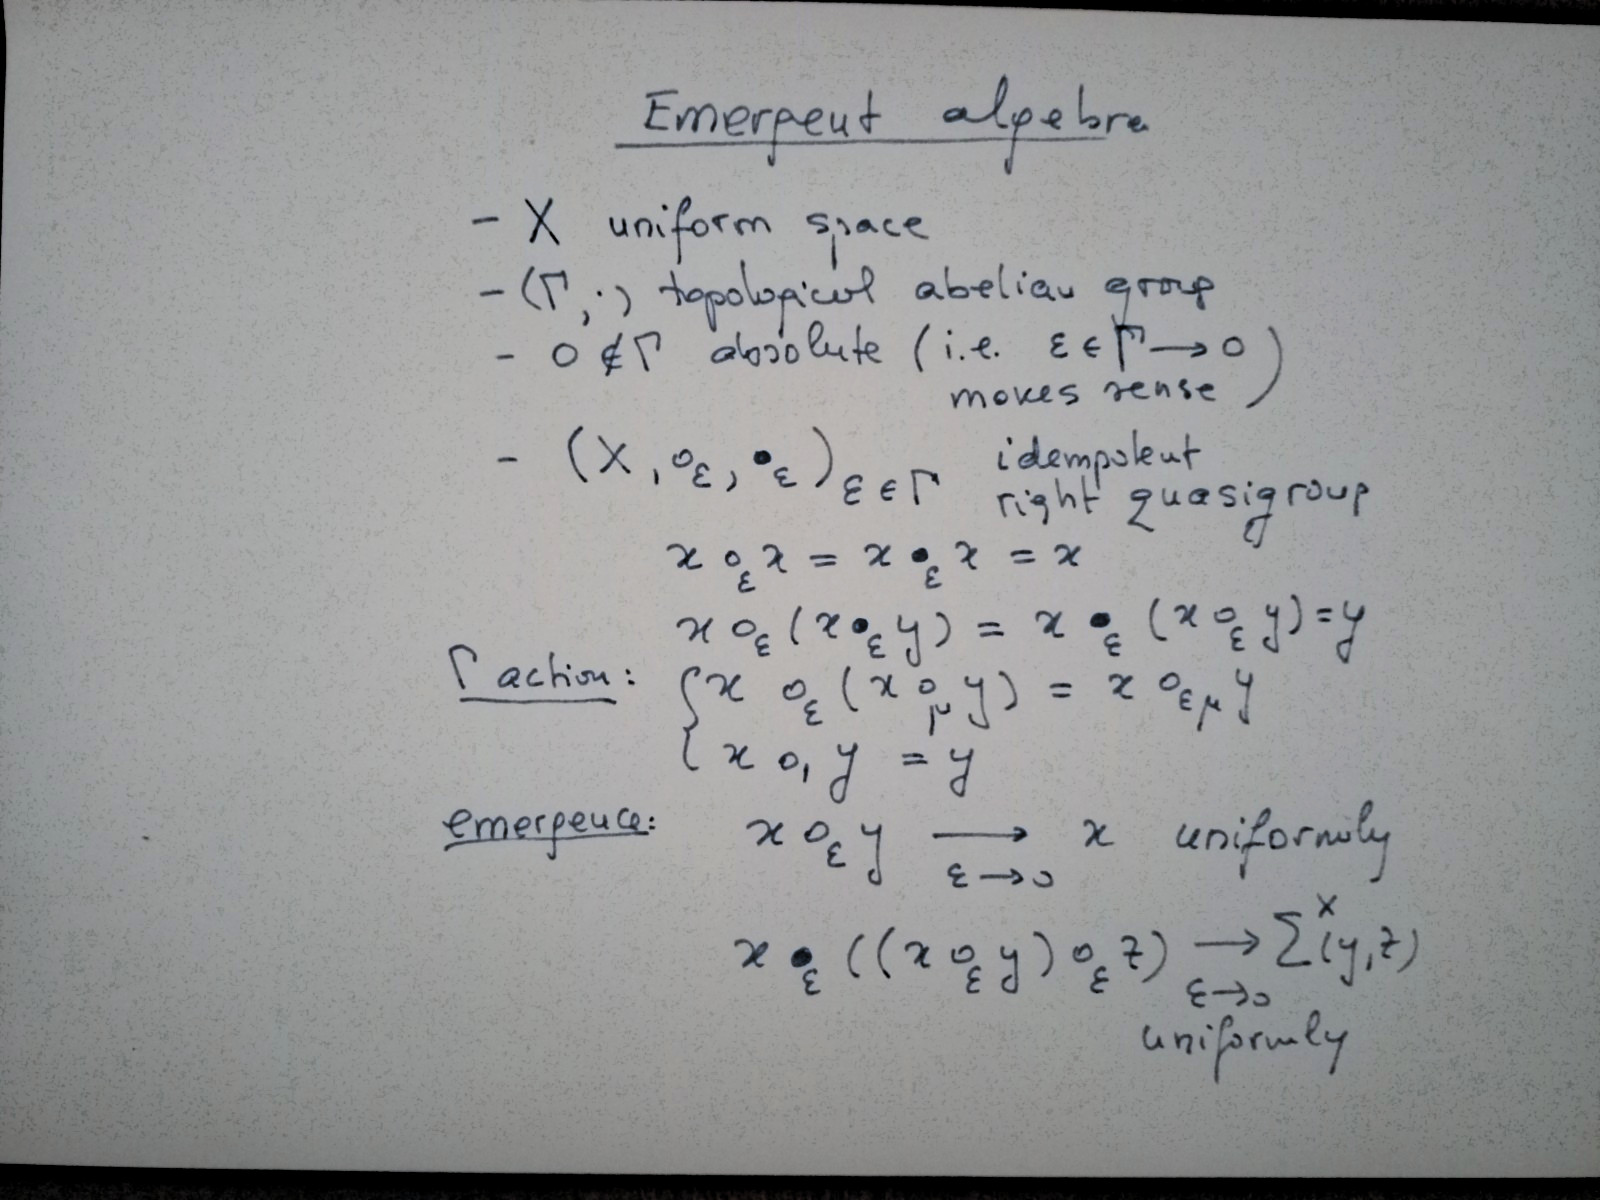 Emergent algebra
- X uniform space
- (Γ, ·) topological abelian group
- 0 ∉ Γ absolute (i.e. ε ∈ Γ → 0
makes sense)
- (X, ∘_ε, •_ε)_{ε ∈ Γ} idempotent
right quasigroup
x ∘_ε x = x •_ε x = x
x ∘_ε (x •_ε y) = x •_ε (x ∘_ε y) = y
Γ action: { x ∘_ε (x ∘_μ y) = x ∘_{εμ} y
x ∘_1 y = y
emergence: x ∘_ε y ⟶_{ε→0} x uniformly
x •_ε ((x ∘_ε y) ∘_ε z) ⟶_{ε→0} Σ^x (y,z)
uniformly